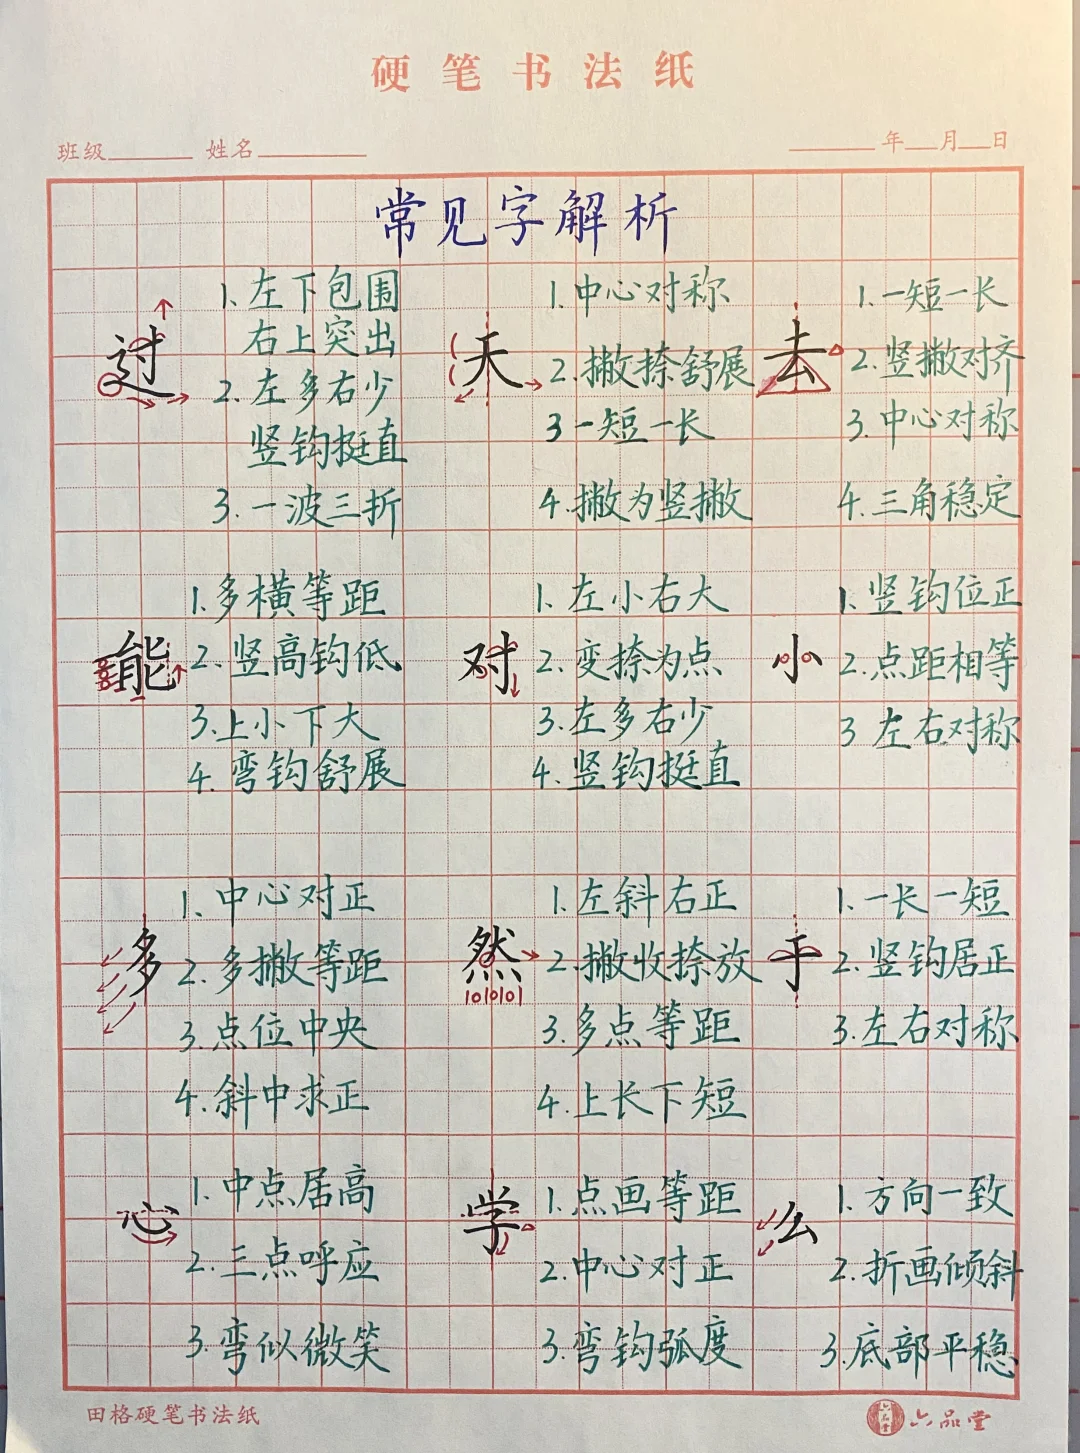 硬笔书法纸
班级 姓名 年 月 日
常见字解析
过
1.左下包围
右上突出
2.左多右少
竖钩挺直
3.一波三折
天
1.中心对称
2.撇捺舒展
3一短一长
4.撇为竖撇
去
1.一短一长
2.竖撇对齐
3.中心对称
4.三角稳定
能
1.多横等距
2.竖高钩低
3.上小下大
4.弯钩舒展
对
1.左小右大
2.变捺为点
3.左多右少
4.竖钩挺直
小
1.竖钩位正
2.点距相等
3左右对称
多
1.中心对正
2.多撇等距
3.点位中央
4.斜中求正
然
1.左斜右正
2.撇收捺放
3.多点等距
4.上长下短
于
1.一长一短
2.竖钩居正
3.左右对称
心
1.中点居高
2.三点呼应
3.弯似微笑
学
1.点画等距
2.中心对正
3.弯钩弧度
么
1.方向一致
2.折画倾斜
3.底部平稳
田格硬笔书法纸
六品堂
六品堂